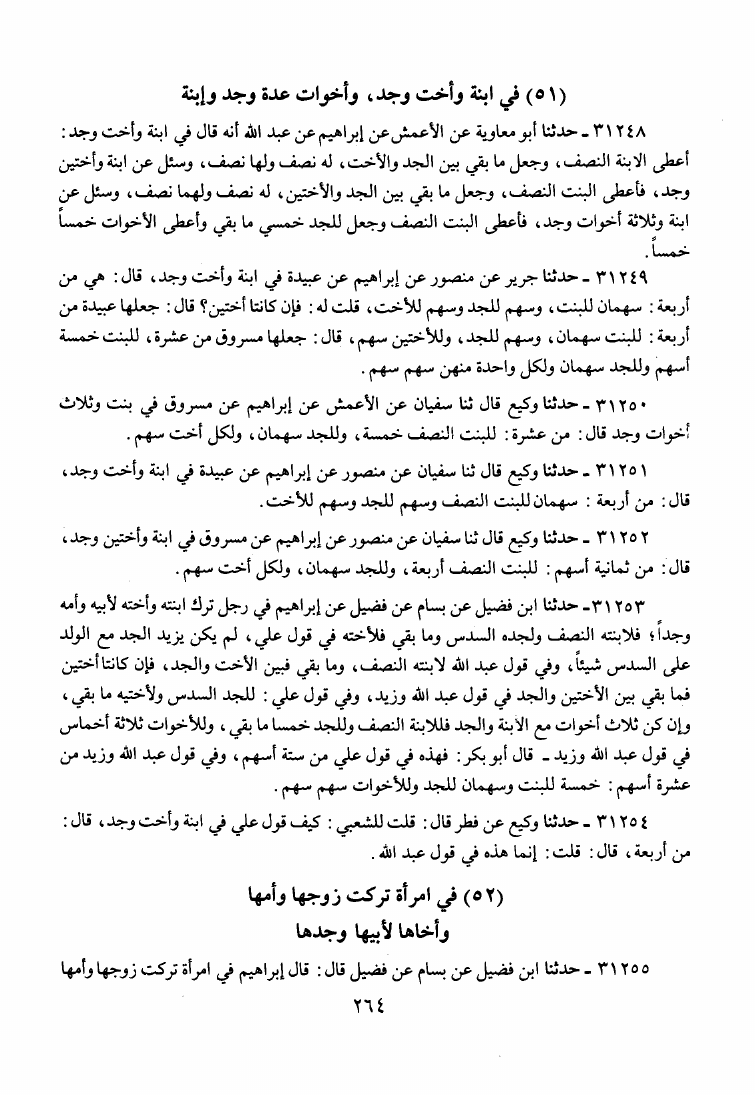 (٥١) في ابنة وأخت وجد، وأخوات عدة وجد وإبنة
٣١٢٤٨ ـ حدثنا أبو معاوية عن الأعمش عن إبراهيم عن عبد الله أنه قال في ابنة وأخت وجد:
أعطى الابنة النصف، وجعل ما بقي بين الجد والأخت، له نصف ولها نصف، وسئل عن ابنة وأختين
وجد، فأعطى البنت النصف، وجعل ما بقي بين الجد والأختين، له نصف ولهما نصف، وسئل عن
ابنة وثلاثة أخوات وجد، فأعطى البنت النصف وجعل للجد خمسي ما بقي وأعطى الأخوات خمساً
خمساً.
٣١٢٤٩ ـ حدثنا جرير عن منصور عن إبراهيم عن عبيدة في ابنة وأخت وجد، قال: هي من
أربعة: سهمان للبنت، وسهم للجد وسهم للأخت، قلت له: فإن كانتا أختين؟ قال: جعلها عبيدة من
أربعة: للبنت سهمان، وسهم للجد، وللأختين سهم، قال: جعلها مسروق من عشرة، للبنت خمسة
أسهم وللجد سهمان ولكل واحدة منهن سهم سهم.
٣١٢٥٠ ـ حدثنا وكيع قال ثنا سفيان عن الأعمش عن إبراهيم عن مسروق في بنت وثلاث
أخوات وجد قال: من عشرة: للبنت النصف خمسة، وللجد سهمان، ولكل أخت سهم.
٣١٢٥١ ـ حدثنا وكيع قال ثنا سفيان عن منصور عن إبراهيم عن عبيدة في ابنة وأخت وجد،
قال: من أربعة: سهمان للبنت النصف وسهم للجد وسهم للأخت.
٣١٢٥٢ ـ حدثنا وكيع قال ثنا سفيان عن منصور عن إبراهيم عن مسروق في ابنة وأختين وجد،
قال: من ثمانية أسهم: للبنت النصف أربعة، وللجد سهمان، ولكل أخت سهم.
٣١٢٥٣ـ حدثنا ابن فضيل عن بسام عن فضيل عن إبراهيم في رجل ترك ابنته وأخته لأبيه وأمه
وجداً؛ فلابنته النصف ولجده السدس وما بقي فلأخته في قول علي، لم يكن يزيد الجد مع الولد
على السدس شيئاً، وفي قول عبد الله لابنته النصف، وما بقي فبين الأخت والجد، فإن كانتا أختين
فما بقي بين الأختين والجد في قول عبد الله وزيد، وفي قول علي: للجد السدس ولأختيه ما بقي،
وإن كن ثلاث أخوات مع الابنة والجد فللابنة النصف وللجد خمسا ما بقي، وللأخوات ثلاثة أخماس
في قول عبد الله وزيد ـ قال أبو بكر: فهذه في قول علي من ستة أسهم، وفي قول عبد الله وزيد من
عشرة أسهم: خمسة للبنت وسهمان للجد وللأخوات سهم سهم.
٣١٢٥٤ ـ حدثنا وكيع عن فطر قال: قلت للشعبي: كيف قول علي في ابنة وأخت وجد، قال:
من أربعة، قال: قلت: إنما هذه في قول عبد الله.
(٥٢) في امرأة تركت زوجها وأمها
وأخاها لأبيها وجدها
٣١٢٥٥ ـ حدثنا ابن فضيل عن بسام عن فضيل قال: قال إبراهيم في امرأة تركت زوجها وأمها
٢٦٤